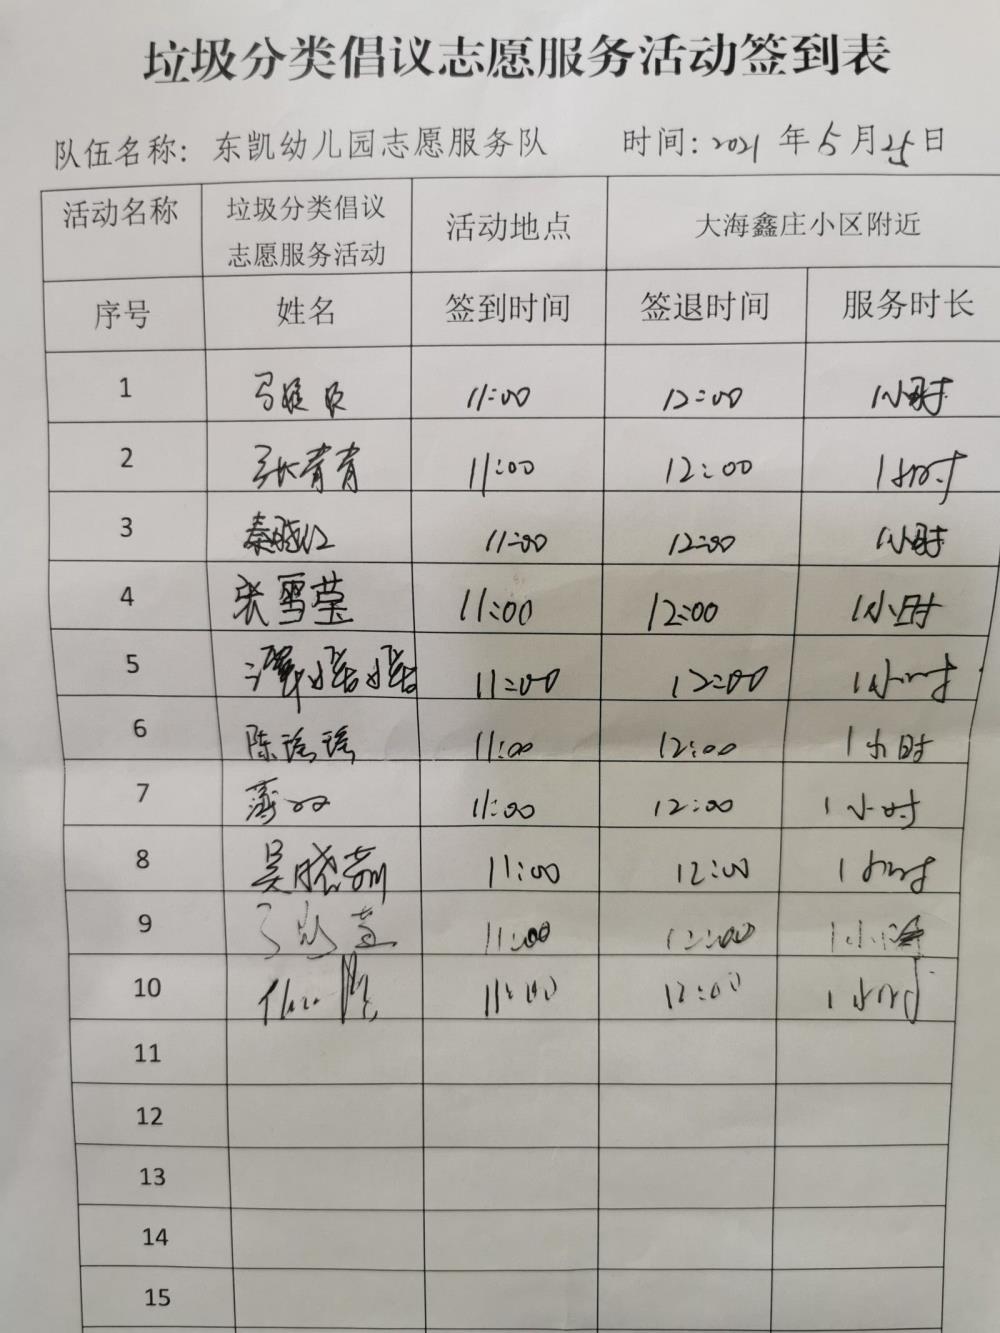 垃圾分类倡议志愿服务活动签到表
队伍名称: 东凯幼儿园志愿服务队 时间: 2021 年 5 月 25 日
活动名称 垃圾分类倡议 活动地点 大海鑫庄小区附近
志愿服务活动
序号 姓名 签到时间 签退时间 服务时长
1 11:00 12:00 1小时
2 张青青 11:00 12:00 1小时
3 秦晓红 11:00 12:00 1小时
4 张雪莹 11:00 12:00 1小时
5 谭婼婼 11:00 12:00 1小时
6 陈瑶瑶 11:00 12:00 1小时
7 11:00 12:00 1小时
8 吴晓茹 11:00 12:00 1小时
9 11:00 12:00 1小时
10 11:00 12:00 1小时
11
12
13
14
15